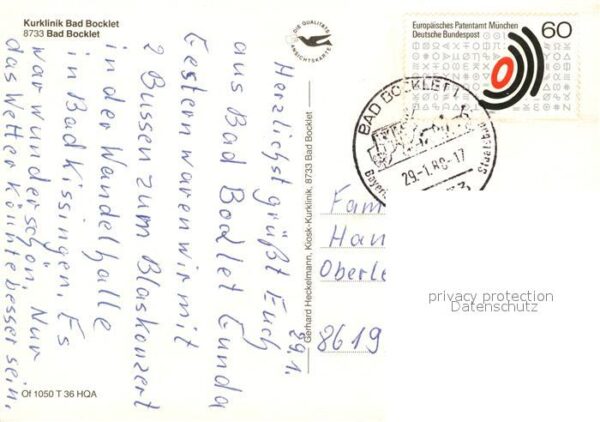 Kurklinik Bad Bocklet
8733 Bad Bocklet
DIE QUALITÄTS
ANSICHTSKARTE
Europäisches Patentamt München
Deutsche Bundespost
60
BAD BOCKLET 1
29.-1.88-17
Bayer.
Staatsbad
29.1.
Herzlichst grüßt Euch
aus Bad Bocklet Gunda
Gestern waren wir mit
2 Bussen zum Blaskonzert
in der Wandelhalle
in Bad Kissingen. Es
war wunderschön. Nur
das Wetter könnte besser sein.
Gerhard Heckelmann, Kiosk-Kurklinik, 8733 Bad Bocklet
Fam
Han
Oberle
8619
privacy protection
Datenschutz
Of 1050 T 36 HQA